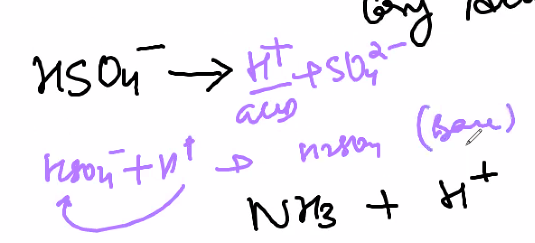 HSO4⁻ → H⁺ + SO4²⁻
acid
HSO4⁻ + H⁺ → H2SO4 (Base)
NH3 + H⁺